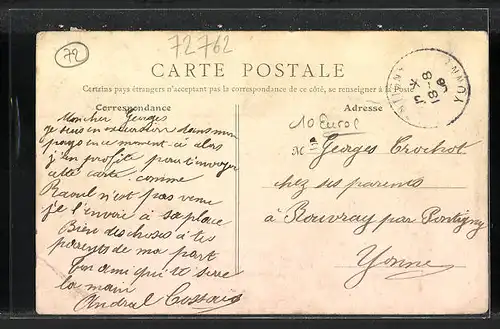 72
72762
CARTE POSTALE
Certains pays étrangers n'acceptent pas la correspondance de ce côté, se renseigner à la Poste
Correspondance
Adresse
10 Euros
YONNE
18-8
Mon cher Georges
je suis en vacances dans mon
pays en ce moment-ci alors
j'en profite pour t'envoyer
cette carte comme
Raoul n'est pas venu
je l'envoie à sa place
Bien des choses à tes
parents de ma part
Ton ami qui te serre
la main
M Georges Crochot
chez ses parents
à Rouvray par Pontigny
Yonne